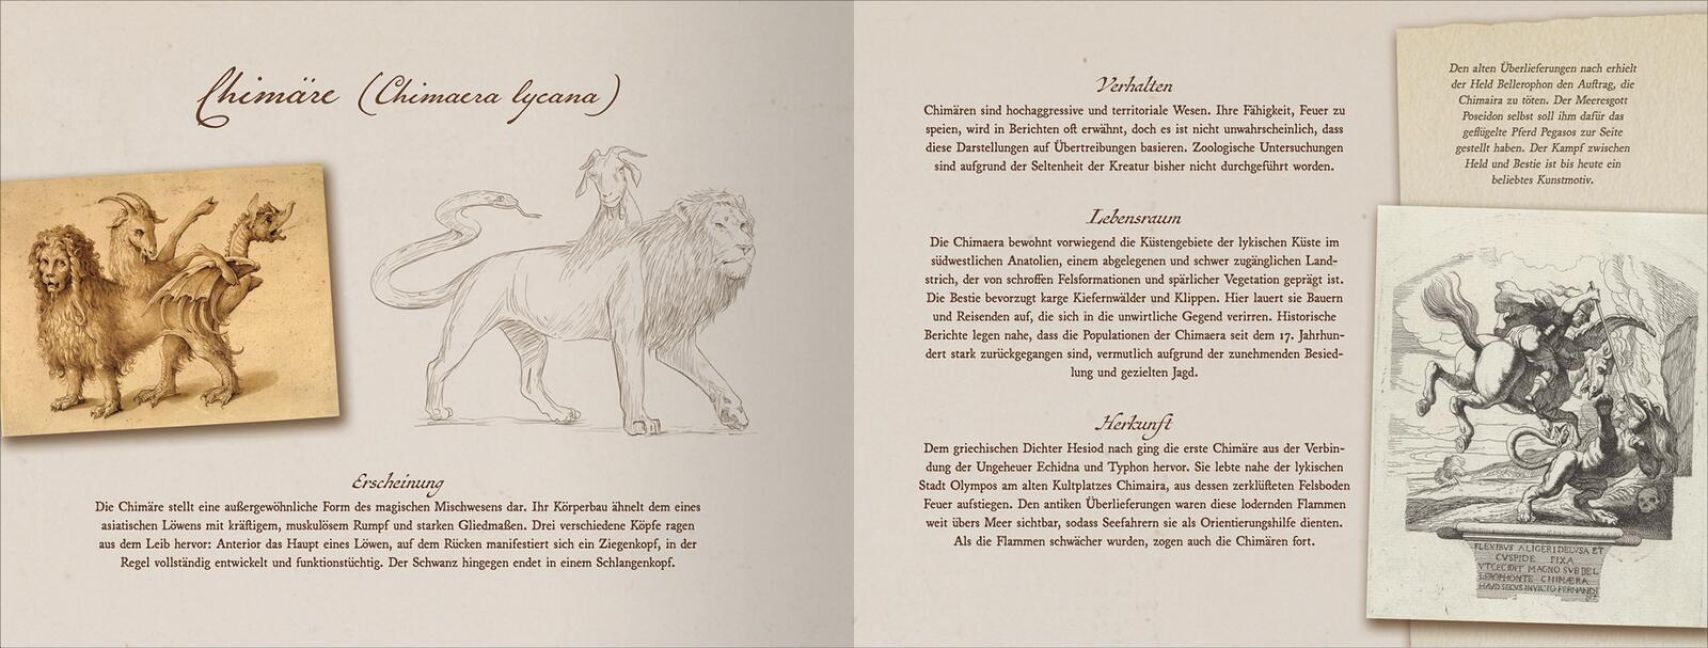 Chimäre (Chimaera lycana)
Erscheinung
Die Chimäre stellt eine außergewöhnliche Form des magischen Mischwesens dar. Ihr Körperbau ähnelt dem eines
asiatischen Löwens mit kräftigem, muskulösem Rumpf und starken Gliedmaßen. Drei verschiedene Köpfe ragen
aus dem Leib hervor: Anterior das Haupt eines Löwen, auf dem Rücken manifestiert sich ein Ziegenkopf, in der
Regel vollständig entwickelt und funktionstüchtig. Der Schwanz hingegen endet in einem Schlangenkopf.
Verhalten
Chimären sind hochaggressive und territoriale Wesen. Ihre Fähigkeit, Feuer zu
speien, wird in Berichten oft erwähnt, doch es ist nicht unwahrscheinlich, dass
diese Darstellungen auf Übertreibungen basieren. Zoologische Untersuchungen
sind aufgrund der Seltenheit der Kreatur bisher nicht durchgeführt worden.
Lebensraum
Die Chimaera bewohnt vorwiegend die Küstengebiete der lykischen Küste im
südwestlichen Anatolien, einem abgelegenen und schwer zugänglichen Land-
strich, der von schroffen Felsformationen und spärlicher Vegetation geprägt ist.
Die Bestie bevorzugt karge Kiefernwälder und Klippen. Hier lauert sie Bauern
und Reisenden auf, die sich in die unwirtliche Gegend verirren. Historische
Berichte legen nahe, dass die Populationen der Chimaera seit dem 17. Jahrhun-
dert stark zurückgegangen sind, vermutlich aufgrund der zunehmenden Besied-
lung und gezielten Jagd.
Herkunft
Dem griechischen Dichter Hesiod nach ging die erste Chimäre aus der Verbin-
dung der Ungeheuer Echidna und Typhon hervor. Sie lebte nahe der lykischen
Stadt Olympos am alten Kultplatzes Chimaira, aus dessen zerklüfteten Felsboden
Feuer aufstiegen. Den antiken Überlieferungen waren diese lodernden Flammen
weit übers Meer sichtbar, sodass Seefahrern sie als Orientierungshilfe dienten.
Als die Flammen schwächer wurden, zogen auch die Chimären fort.
Den alten Überlieferungen nach erhielt
der Held Bellerophon den Auftrag, die
Chimaira zu töten. Der Meeresgott
Poseidon selbst soll ihm dafür das
geflügelte Pferd Pegasos zur Seite
gestellt haben. Der Kampf zwischen
Held und Bestie ist bis heute ein
beliebtes Kunstmotiv.
FLEXIBUS ALIGERI DELUSA ET
CVSPIDE FIXA
VT CECIDIT MAGNO SVB BEL
LEROPHONTE CHIMÆRA
HAVD SECVS INVICTO FERNANDI